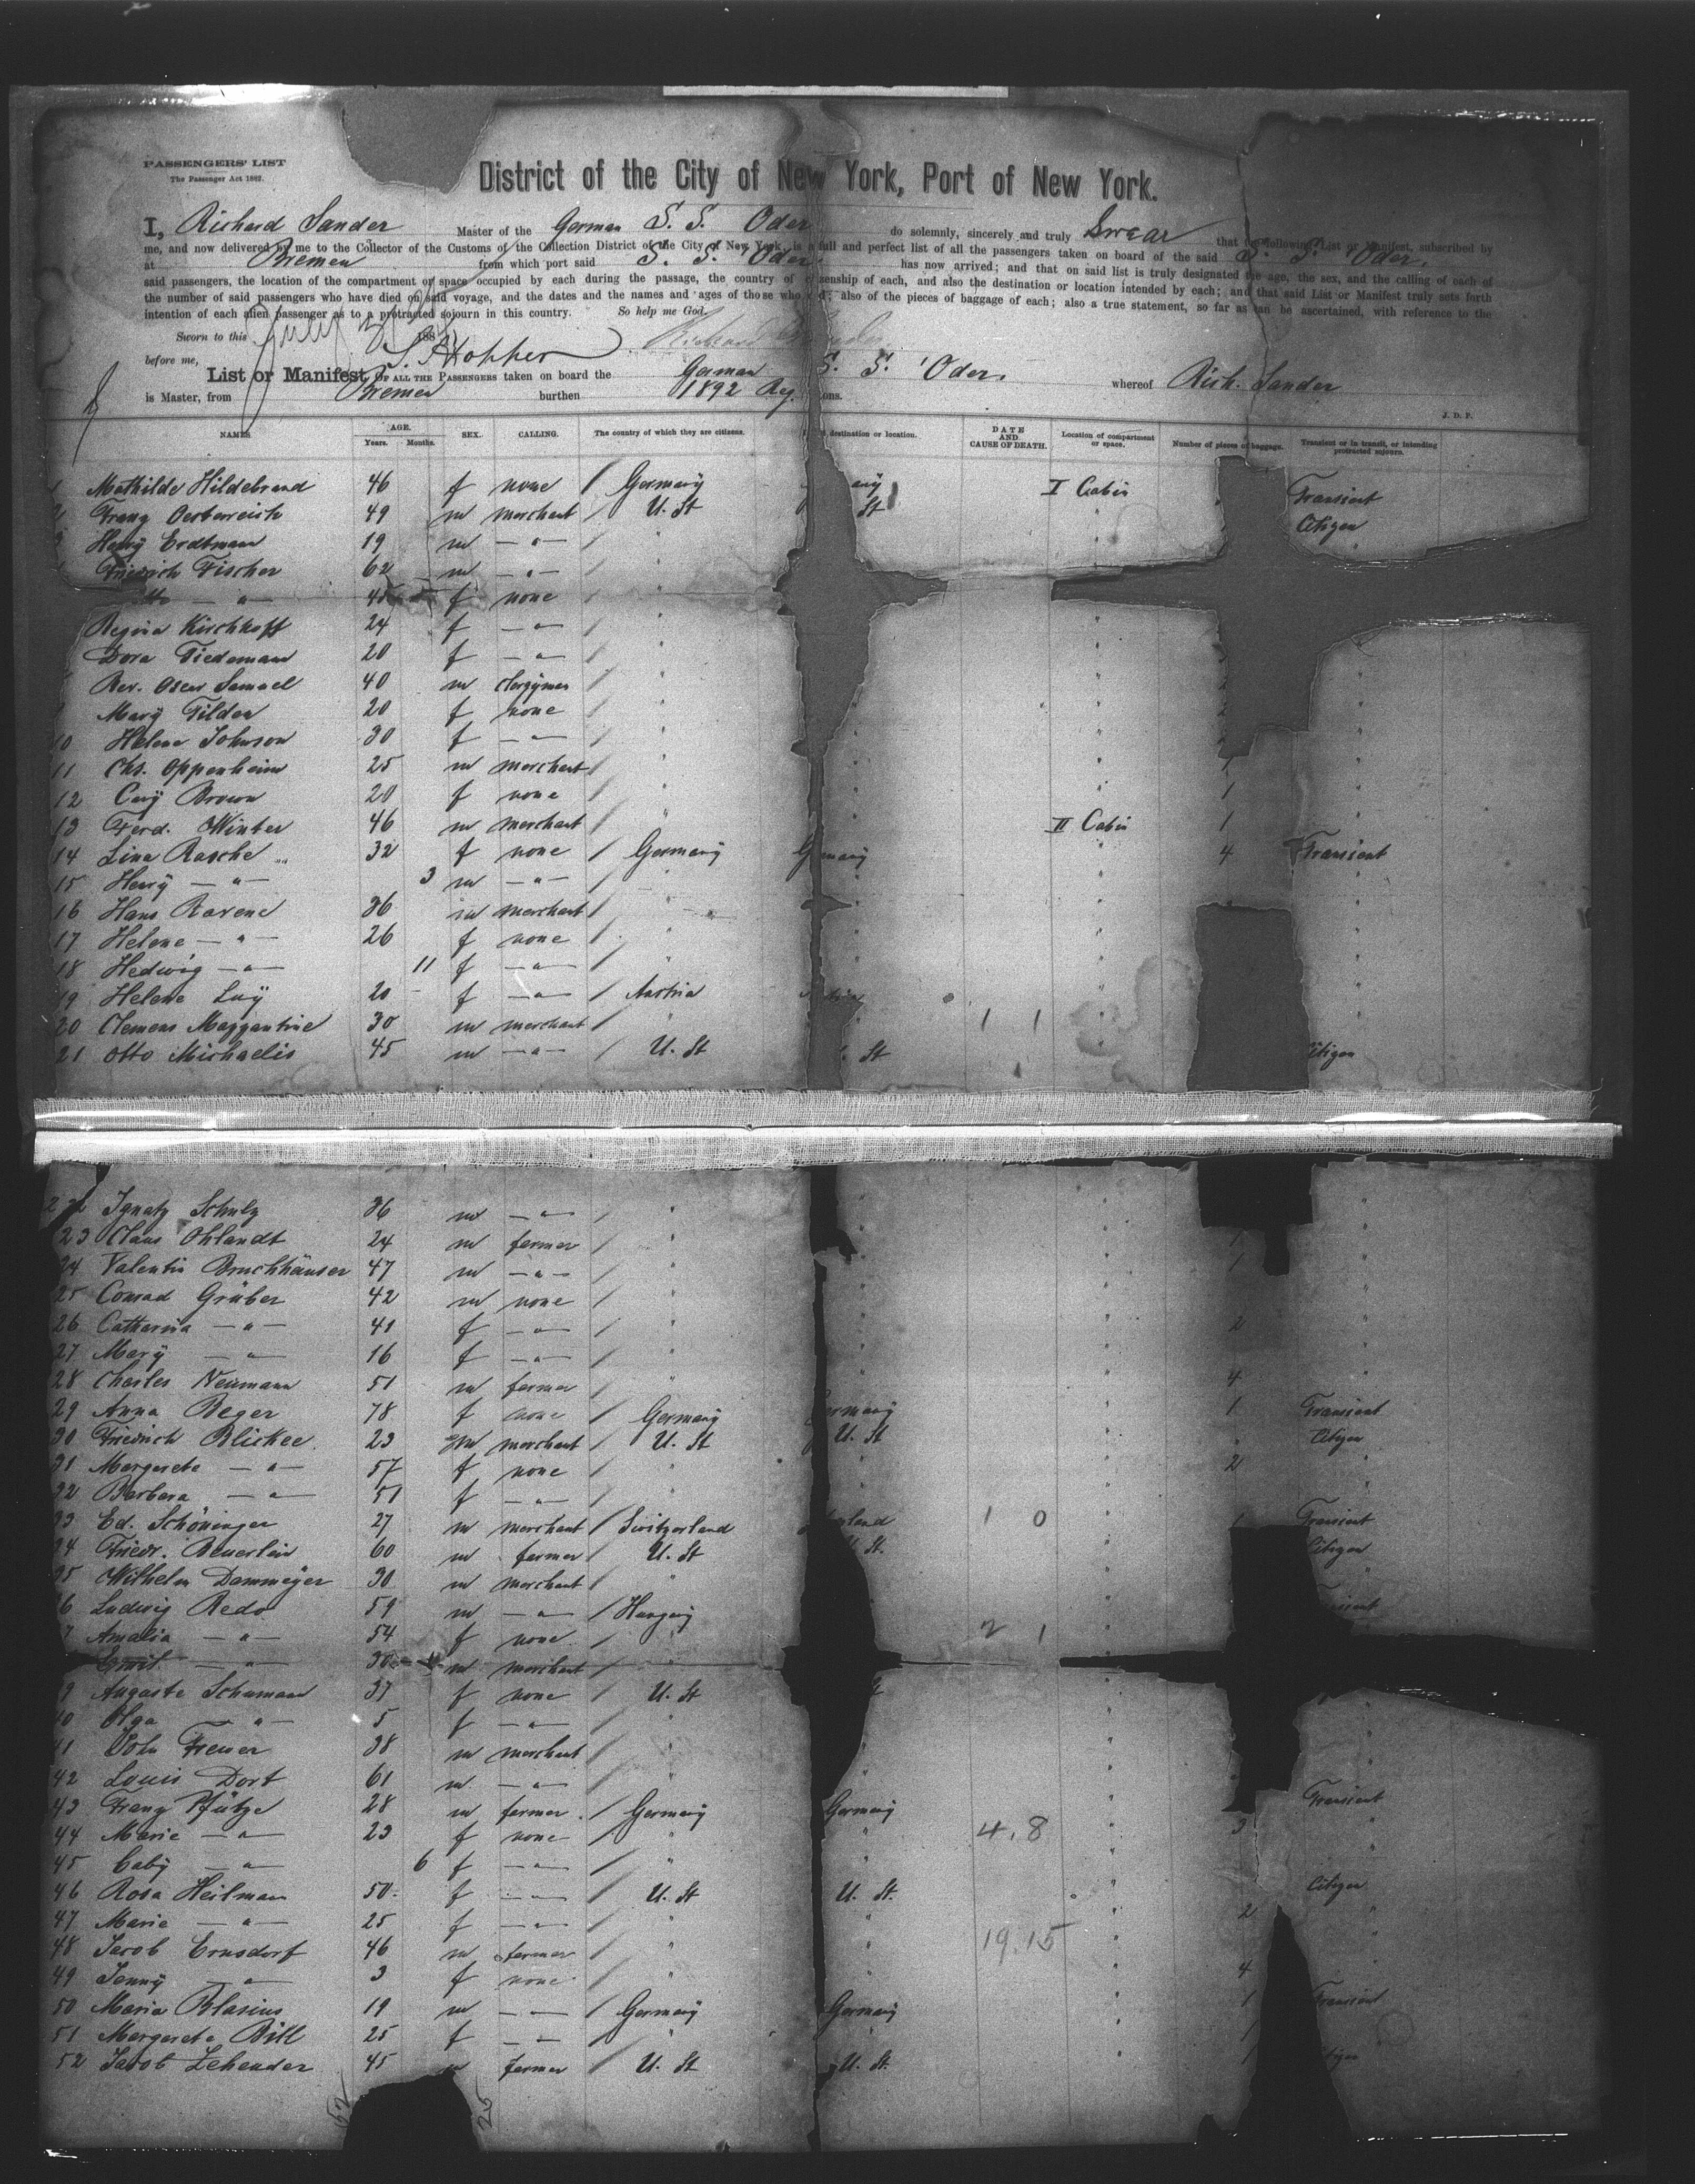 PASSENGERS' LIST
The Passenger Act 1882.
District of the City of New York, Port of New York.
I, Richard Sander Master of the German S. S. Oder do solemnly, sincerely and truly Swear that the following List or Manifest, subscribed by
me, and now delivered by me to the Collector of the Customs of the Collection District of the City of New York, is a full and perfect list of all the passengers taken on board of the said S. S. Oder.
at Bremen from which port said S. S. Oder has now arrived; and that on said list is truly designated the age, the sex, and the calling of each of
said passengers, the location of the compartment or space occupied by each during the passage, the country of citizenship of each, and also the destination or location intended by each; and that said List or Manifest truly sets forth
the number of said passengers who have died on said voyage, and the dates and the names and ages of those who died; also of the pieces of baggage of each; also a true statement, so far as can be ascertained, with reference to the
intention of each alien passenger as to a protracted sojourn in this country. So help me God.
Sworn to this July 188
before me, Hopper
List or Manifest, OF ALL THE PASSENGERS taken on board the German S. S. Oder, whereof Rich. Sander
is Master, from Bremen burthen 1892 Reg. tons.
J. D. P.
NAMES AGE. Years. Months. SEX. CALLING. The country of which they are citizens. destination or location. DATE AND CAUSE OF DEATH. Location of compartment or space. Number of pieces of baggage. Transient or in transit, or intending protracted sojourn.
Mathilde Hildebrand 46 f none / Germany any I Cabin Transient
Franz Oesterreich 49 m merchant / U. St St " Citizen
Henry Erdtmann 19 m — " — / " "
Friedrich Fischer 62 m — " — / "
— " — 45 f none / "
Regina Kirchhoff 24 f — " — / " "
Dora Tiedemann 20 f — " — / " " "
Rev. Oscar Samuel 40 m clergyman / " " "
Mary Tilden 20 f none / " " "
10 Helene Johnson 30 f — " — / " " " "
11 Chs. Oppenheim 25 m merchant / " " " 1 "
12 Cary Brown 20 f none / " " " 1 "
13 Ferd. Winter 46 m merchant / " " II Cabin 1 "
14 Lina Rasche 32 f none / Germany Germany " 4 Transient
15 Henry — " — 3 m — " — / " " " "
16 Hans Ravené 36 m merchant / " " "
17 Helene — " — 26 f none / " " " "
18 Hedwig — " — 11 f — " — / " " " "
19 Helene Luy 20 f — " — / Austria "
20 Clemens Mazzantini 30 m merchant / " " 1 1 " "
21 Otto Michaelis 45 m — " — / U. St St " Citizen
22 Ignatz Schulz 36 m — " — / " " " "
23 Claus Ohlandt 24 m farmer / " " 1 "
24 Valentin Bruchhäuser 47 m — " — / " " " 1 "
25 Conrad Grüber 42 m none / " " " "
26 Catharina — " — 41 f — " — / " " " 2 "
27 Mary — " — 16 f — " — / " " " "
28 Charles Neumann 51 m farmer / " " " 4 "
29 Anna Beger 78 f none / Germany ermany " 1 Transient
30 Friedrich Blickee 23 m merchant / U. St U. St " " Citizen
31 Margarete — " — 57 f none / " " " 2 "
32 Barbara — " — 51 f — " — / " " " "
33 Ed. Schöninger 27 m merchant / Switzerland land 1 0 " 1 Transient
34 Friedr. Beuerlein 60 m farmer / U. St St. " Citizen
35 Wilhelm Dammeyer 30 m merchant / " "
36 Ludwig Redo 59 m — " — / Hungary "
7 Amalia — " — 54 f none / 2 1 "
Emil — " — 30 m merchant / " "
9 Auguste Schumann 37 f none / U. St "
40 Olga — " — 5 f — " — / " " "
41 John Frewer 38 m merchant / " " " "
42 Louis Dort 61 m — " — / " " " "
43 Franz Pfütze 28 m farmer / Germany Germany " Transient
44 Marie — " — 23 f none / " " 4. 8 " 3 "
45 baby — " — 6 f — " — / " " " "
46 Rosa Heilman 50 f — " — / U. St U. St. " Citizen
47 Marie — " — 25 f — " — / " " " 2 "
48 Jacob Ernsdorf 46 m farmer / " " 19. 15 " "
49 Jenny — " — 3 f none / " " " 4 "
50 Maria Blasius 19 m — " — / Germany Germany " 1 Transient
51 Margarete Bill 25 f — " — / " " " 1 "
52 Jacob Zehender 45 farmer / U. St U. St. " 1
52 25